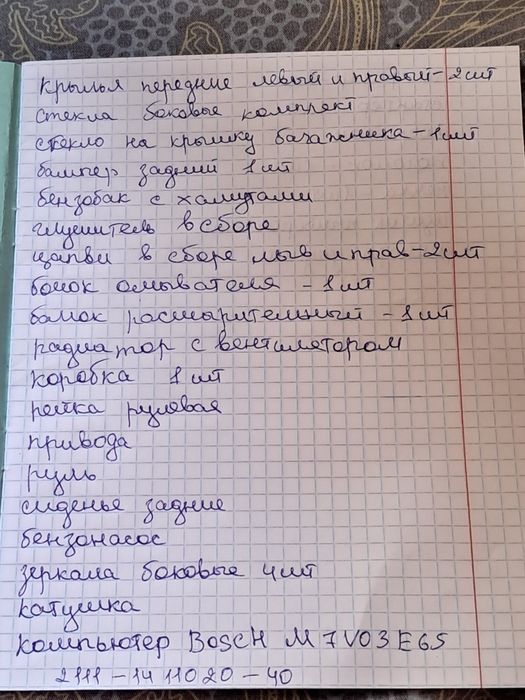 крылья передние левый и правый - 2 шт
стекла боковые комплект
стекло на крышку багажника - 1 шт
бампер задний 1 шт
бензобак с хомутами
глушитель в сборе
цапви в сборе лыв и прав - 2 шт
бочок омывателя - 1 шт
бачок расширительный - 1 шт
радиатор с вентилятором
коробка 1 шт
рейка рулевая
привода
руль
сиденье задние
бензонасос
зеркала боковые 4 шт
катушка
компьютер BOSCH M7V03E65
2111 - 1411020 - 40